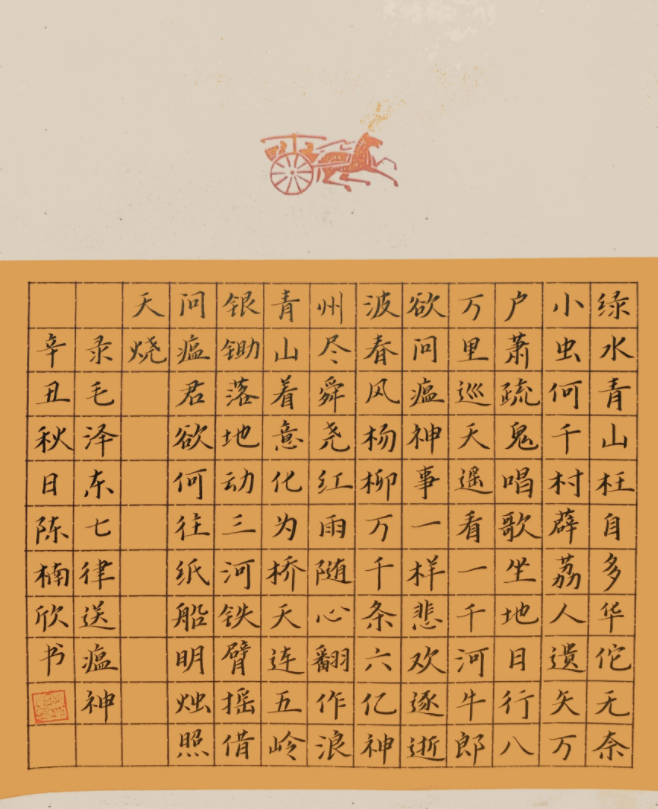 绿水青山枉自多华佗无奈
小虫何千村薜荔人遗矢万
户萧疏鬼唱歌坐地日行八
万里巡天遥看一千河牛郎
欲问瘟神事一样悲欢逐逝
波春风杨柳万千条六亿神
州尽舜尧红雨随心翻作浪
青山着意化为桥天连五岭
银锄落地动三河铁臂摇借
问瘟君欲何往纸船明烛照
天烧
录毛泽东七律送瘟神
辛丑秋日陈楠欣书